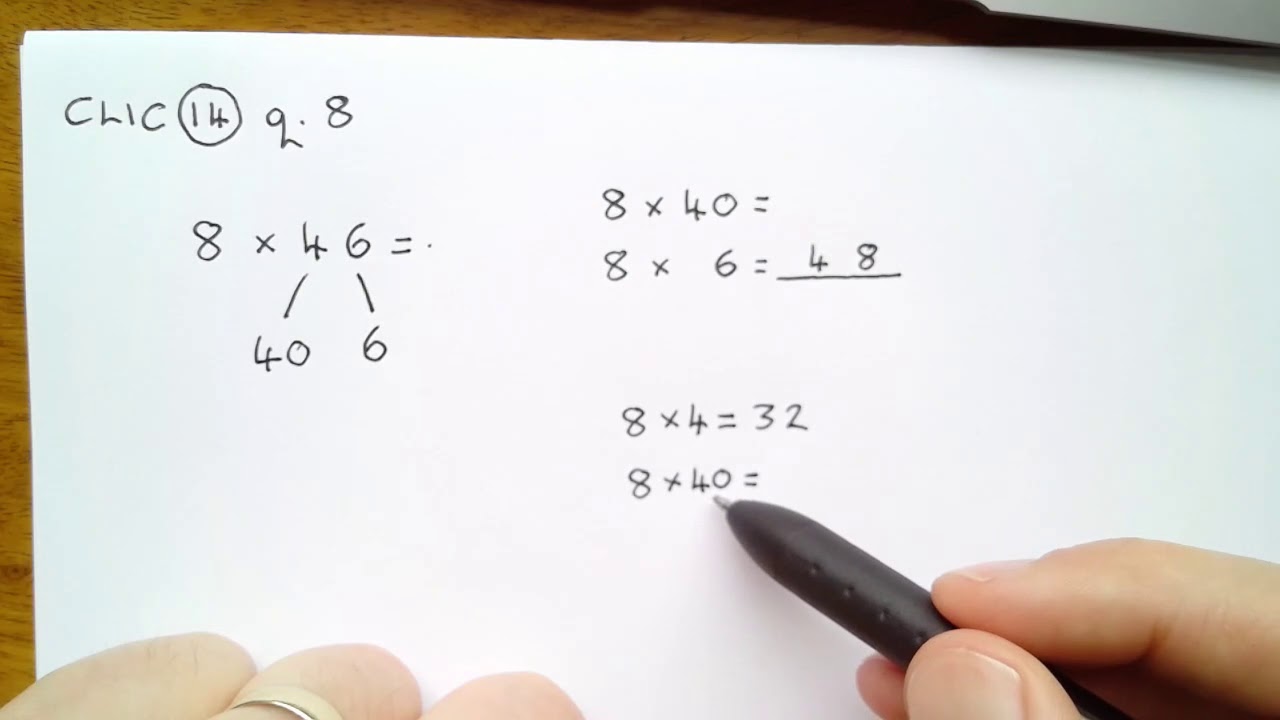 CLIC 14 q. 8
8 × 46 =
40 6
8 × 40 =
8 × 6 = 48
8 × 4 = 32
8 × 40 =